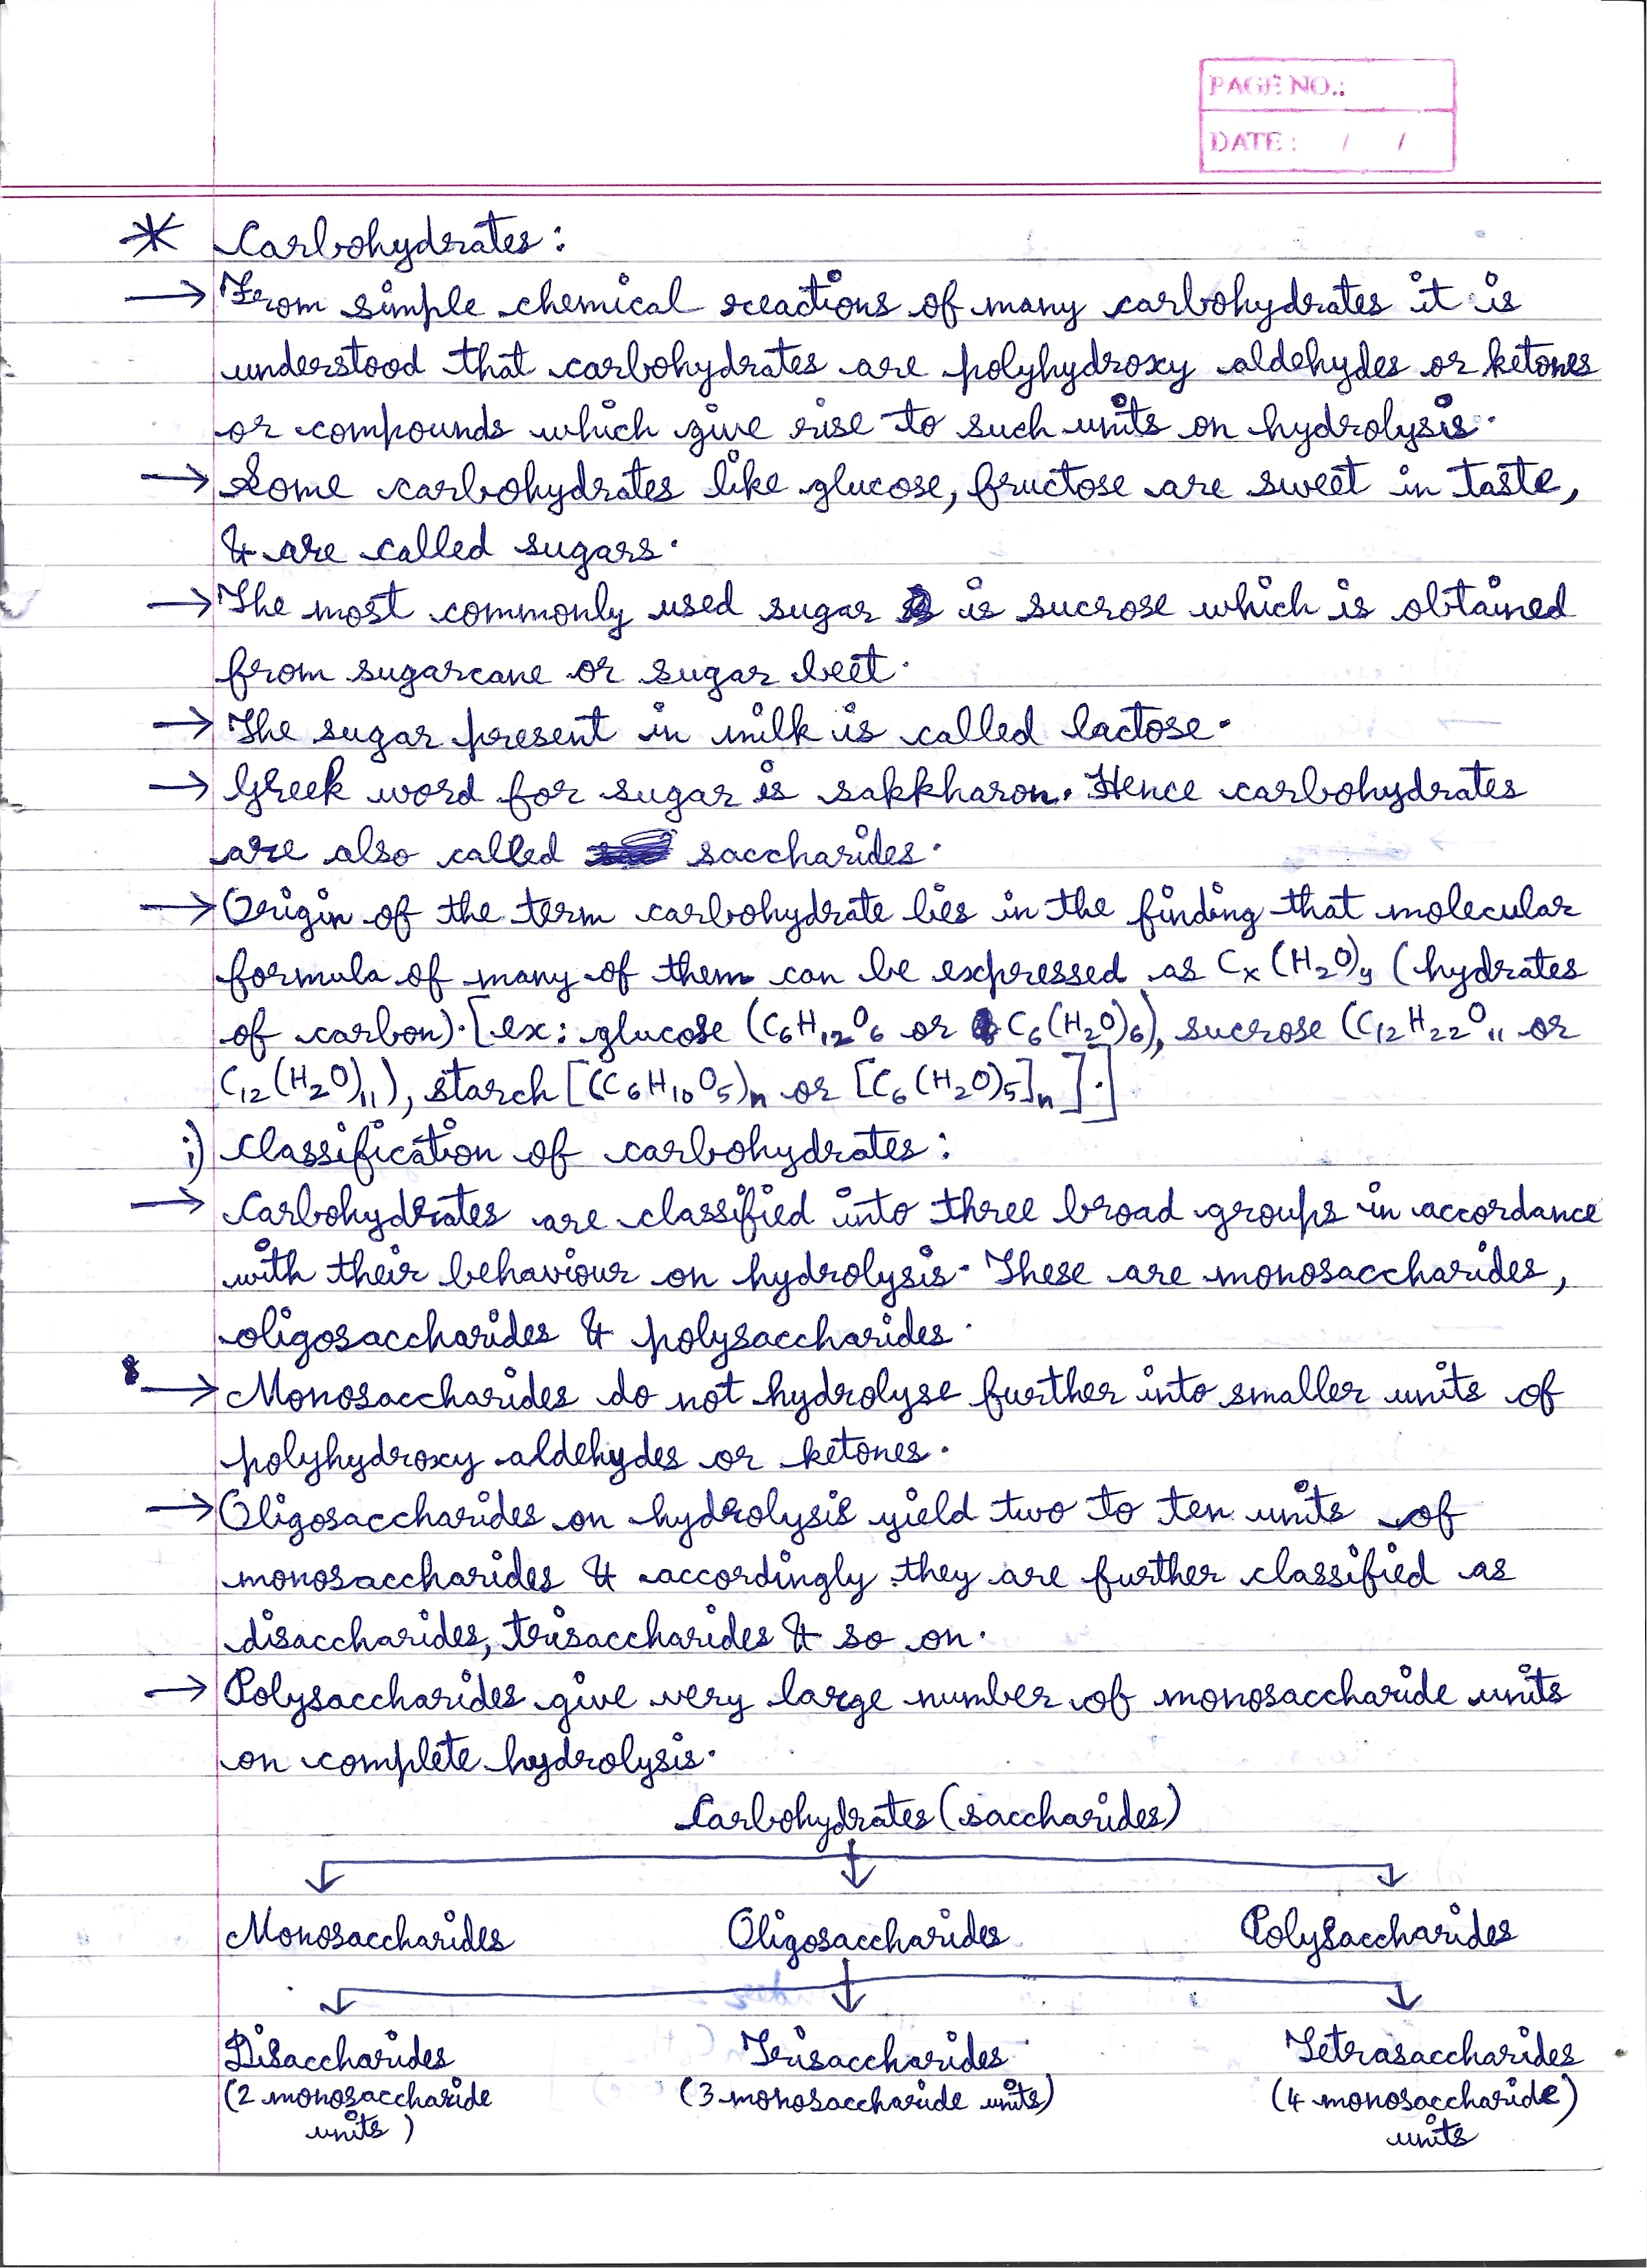 PAGE NO.:
DATE: / /
* Carbohydrates:
→ From simple chemical reactions of many carbohydrates it is
understood that carbohydrates are polyhydroxy aldehydes or ketones
or compounds which give rise to such units on hydrolysis.
→ Some carbohydrates like glucose, fructose are sweet in taste,
& are called sugars.
→ The most commonly used sugar is sucrose which is obtained
from sugarcane or sugar beet.
→ The sugar present in milk is called lactose.
→ Greek word for sugar is sakkharon. Hence carbohydrates
are also called saccharides.
→ Origin of the term carbohydrate lies in the finding that molecular
formula of many of them can be expressed as Cₓ(H₂O)y (hydrates
of carbon). [ex: glucose (C₆H₁₂O₆ or C₆(H₂O)₆), sucrose (C₁₂H₂₂O₁₁ or
C₁₂(H₂O)₁₁), starch [(C₆H₁₀O₅)ₙ or [C₆(H₂O)₅]ₙ].]
i) Classification of carbohydrates:
→ Carbohydrates are classified into three broad groups in accordance
with their behaviour on hydrolysis. These are monosaccharides,
oligosaccharides & polysaccharides.
→ Monosaccharides do not hydrolyse further into smaller units of
polyhydroxy aldehydes or ketones.
→ Oligosaccharides on hydrolysis yield two to ten units of
monosaccharides & accordingly they are further classified as
disaccharides, trisaccharides & so on.
→ Polysaccharides give very large number of monosaccharide units
on complete hydrolysis.
Carbohydrates (saccharides)
Monosaccharides Oligosaccharides Polysaccharides
Disaccharides Trisaccharides Tetrasaccharides
(2 monosaccharide (3 monosaccharide units) (4 monosaccharide)
units) units